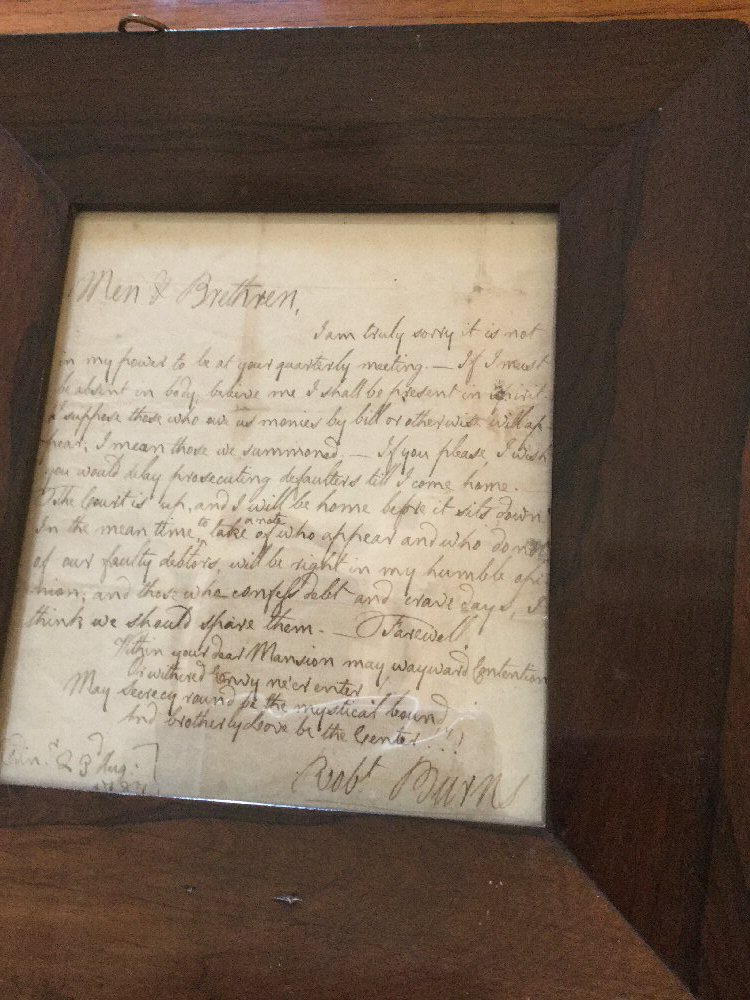 Men & Brethren,
I am truly sorry it is not
in my power to be at your quarterly meeting. — If I must
be absent in body, believe me I shall be present in spirit. —
I suppose those who owe us monies by bill or otherwise will ap-
pear; I mean those we summoned. — If you please I wish
you would delay prosecuting defaulters till I come home. —
The Court is up, and I will be home before it sits down.
In the mean time, to take a note of who appear and who do not
of our faulty debtors, will be right in my humble opi-
nion; and those who confess debt and crave days, I
think we should spare them. — Farewell!
Within your dear Mansion may wayward Contention
Or withered Envy ne'er enter!
May Secrecy round be the mystical bound
And brotherly Love be the Center!!!
Edin.r 23d Aug:
1787
Robt Burns